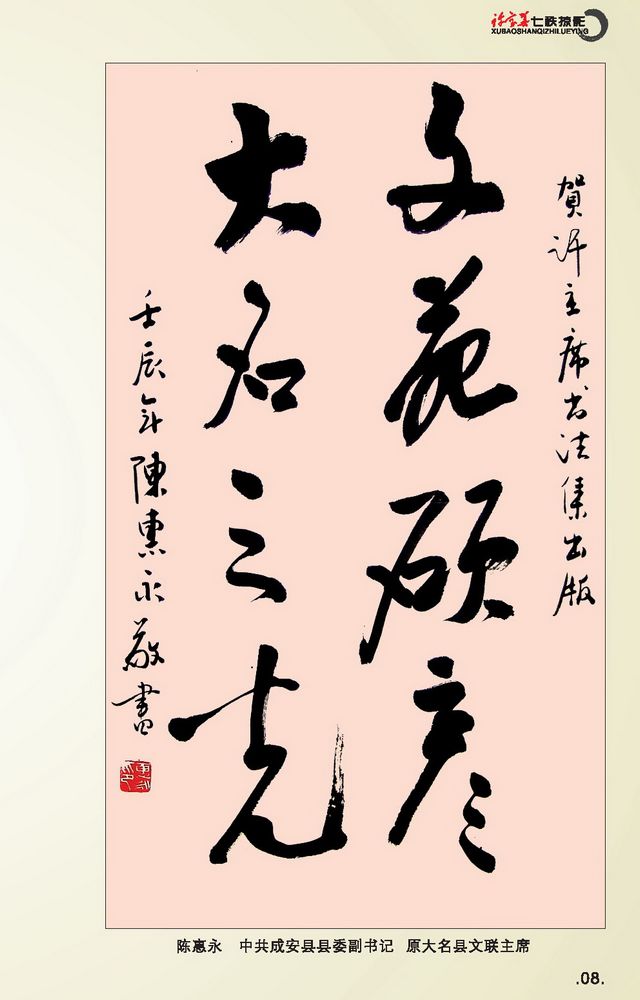 许宝善七秩掠影
XUBAOSHANQIZHILUEYING
賀许主席书法集出版
文苑硕彦
大名三克
壬辰年陳惠永敬書
陈惠永 中共成安县县委副书记 原大名县文联主席
.08.